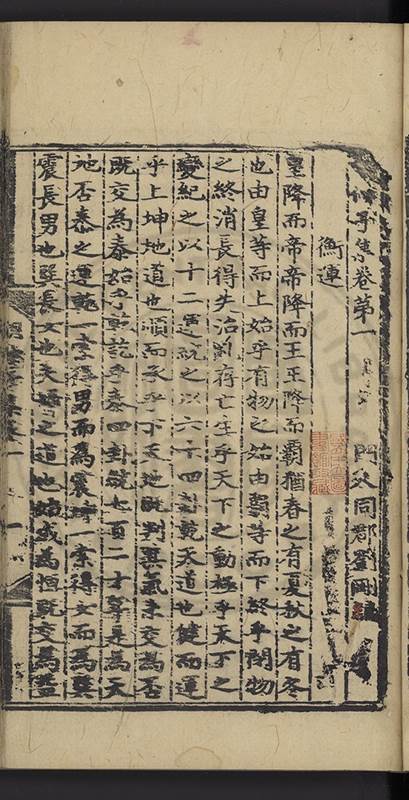 仲子集卷第一 門人同郡劉剛
衡運
皇降而帝帝降而王王降而霸猶春之有夏秋之有冬
也由皇等而上始乎有物之始由霸等而下終乎閉物
之終消長得失治亂存亡生乎天下之動極乎天下之
變紀之以十二運統之以六十四卦乾天道也健而運
乎上坤地道也順而承乎下天地既判其氣未交為否
既交為泰始乎乾訖乎泰四卦統七百二十算是為天
地否泰之運乾一索得男而為震坤一索得女而為巽
震長男也巽長女也夫婦之道也始成為恒既交為益